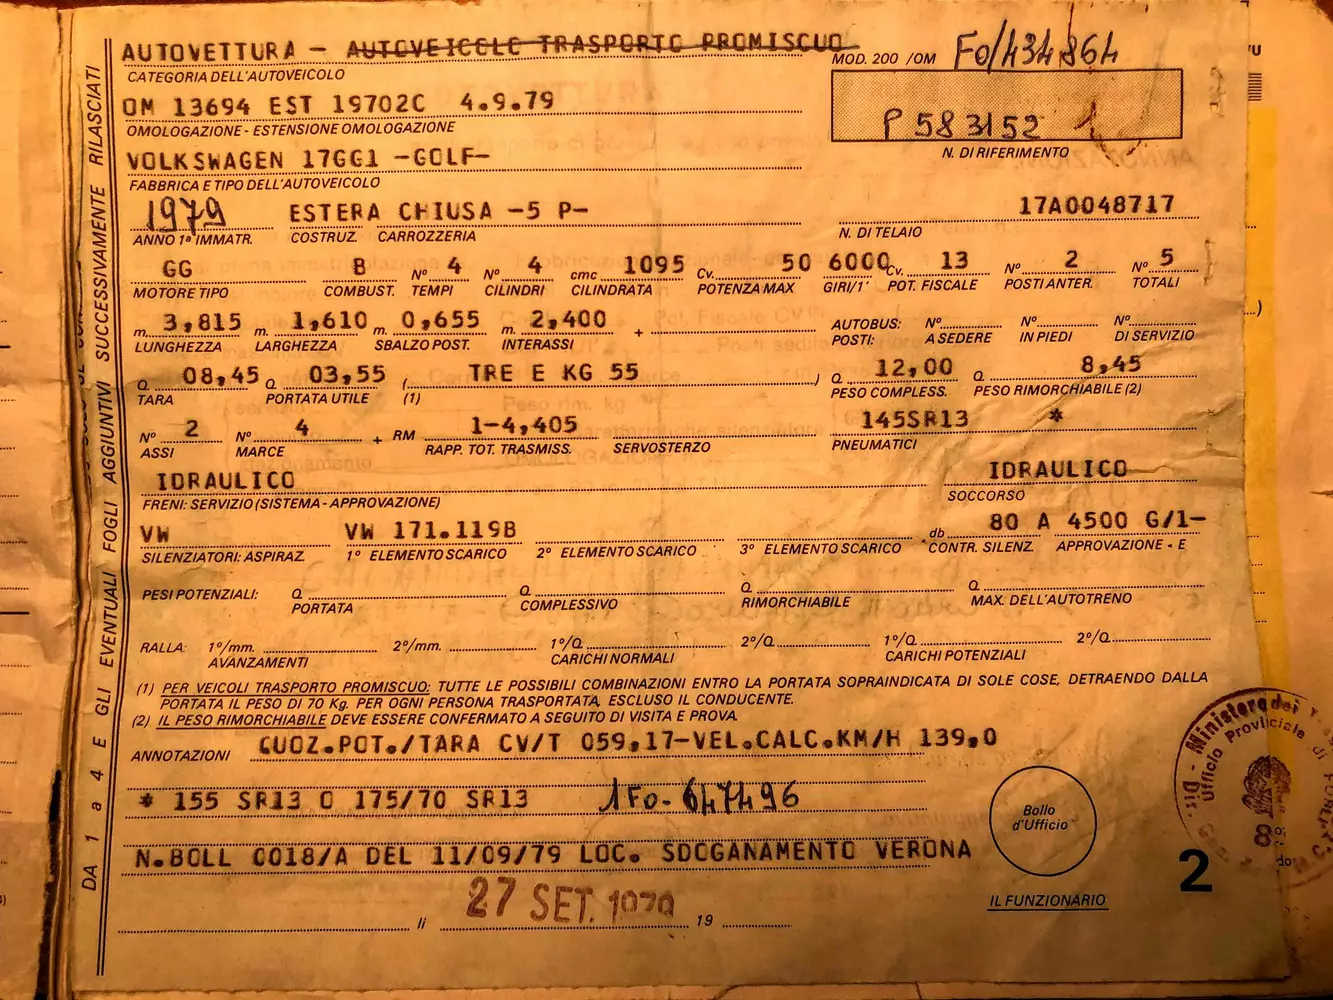 AUTOVETTURA - AUTOVEICOLO TRASPORTO PROMISCUO
MOD. 200 /OM FO/434864
CATEGORIA DELL'AUTOVEICOLO
OM 13694 EST 19702C 4.9.79
P 583152
OMOLOGAZIONE - ESTENSIONE OMOLOGAZIONE
N. DI RIFERIMENTO
VOLKSWAGEN 17GG1 -GOLF-
FABBRICA E TIPO DELL'AUTOVEICOLO
1979 ESTERA CHIUSA -5 P- 17A0048717
ANNO 1ª IMMATR. COSTRUZ. CARROZZERIA N. DI TELAIO
GG B N° 4 N° 4 cmc 1095 Cv. 50 6000 Cv. 13 N° 2 N° 5
MOTORE TIPO COMBUST. TEMPI CILINDRI CILINDRATA POTENZA MAX GIRI/1' POT. FISCALE POSTI ANTER. TOTALI
m. 3,815 m. 1,610 m. 0,655 m. 2,400 + AUTOBUS: N° N° N°
LUNGHEZZA LARGHEZZA SBALZO POST. INTERASSI POSTI: A SEDERE IN PIEDI DI SERVIZIO
Q 08,45 Q 03,55 ( TRE E KG 55 ) Q 12,00 Q 8,45
TARA PORTATA UTILE (1) PESO COMPLESS. PESO RIMORCHIABILE (2)
N° 2 N° 4 + RM 1-4,405 145SR13 *
ASSI MARCE RAPP. TOT. TRASMISS. SERVOSTERZO PNEUMATICI
IDRAULICO IDRAULICO
FRENI: SERVIZIO (SISTEMA - APPROVAZIONE) SOCCORSO
VW VW 171.119B db 80 A 4500 G/1-
SILENZIATORI: ASPIRAZ. 1° ELEMENTO SCARICO 2° ELEMENTO SCARICO 3° ELEMENTO SCARICO CONTR. SILENZ. APPROVAZIONE - E
PESI POTENZIALI: Q Q Q Q
PORTATA COMPLESSIVO RIMORCHIABILE MAX. DELL'AUTOTRENO
RALLA: 1°/mm. 2°/mm. 1°/Q 2°/Q 1°/Q 2°/Q
AVANZAMENTI CARICHI NORMALI CARICHI POTENZIALI
(1) PER VEICOLI TRASPORTO PROMISCUO: TUTTE LE POSSIBILI COMBINAZIONI ENTRO LA PORTATA SOPRAINDICATA DI SOLE COSE, DETRAENDO DALLA
PORTATA IL PESO DI 70 Kg. PER OGNI PERSONA TRASPORTATA, ESCLUSO IL CONDUCENTE.
(2) IL PESO RIMORCHIABILE DEVE ESSERE CONFERMATO A SEGUITO DI VISITA E PROVA.
ANNOTAZIONI CUOZ.POT./TARA CV/T 059,17-VEL.CALC.KM/H 139,0
* 155 SR13 O 175/70 SR13 1FO-647496
N.BOLL C018/A DEL 11/09/79 LOC. SDOGANAMENTO VERONA
27 SET. 1979
li 19
Bollo
d'Ufficio
IL FUNZIONARIO
2
Ministero dei
Ufficio Provinciale di
8°
DA 1 a 4 E GLI EVENTUALI FOGLI AGGIUNTIVI SUCCESSIVAMENTE RILASCIATI